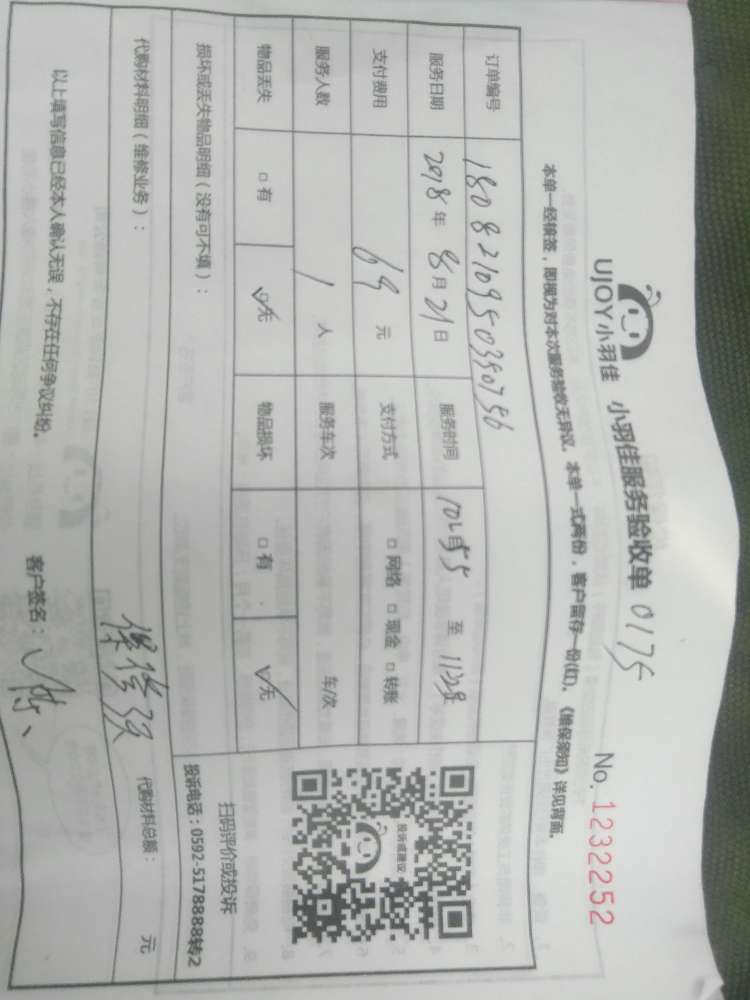 UJOY小羽佳 小羽佳服务验收单 0175 No. 1232252
本单一经核签，即视为对本次服务验收无异议。本单一式两份，客户留存一份(红)。《维保须知》详见背面。
订单编号
服务日期 2018年 8月 21日 服务时间 至
支付费用 69 元 支付方式 □网络 □现金 □转账
服务人数 1 人 服务车次 车/次
物品丢失 □有 ☑无 物品损坏 □有 ☑无
损坏或丢失物品明细（没有可不填）：
投诉或建议
扫码评价或投诉
投诉电话：0592-5178888转2
代购材料明细（维修业务）： 代购材料总额： 元
以上填写信息已经本人确认无误，不存在任何争议纠纷。 客户签名：